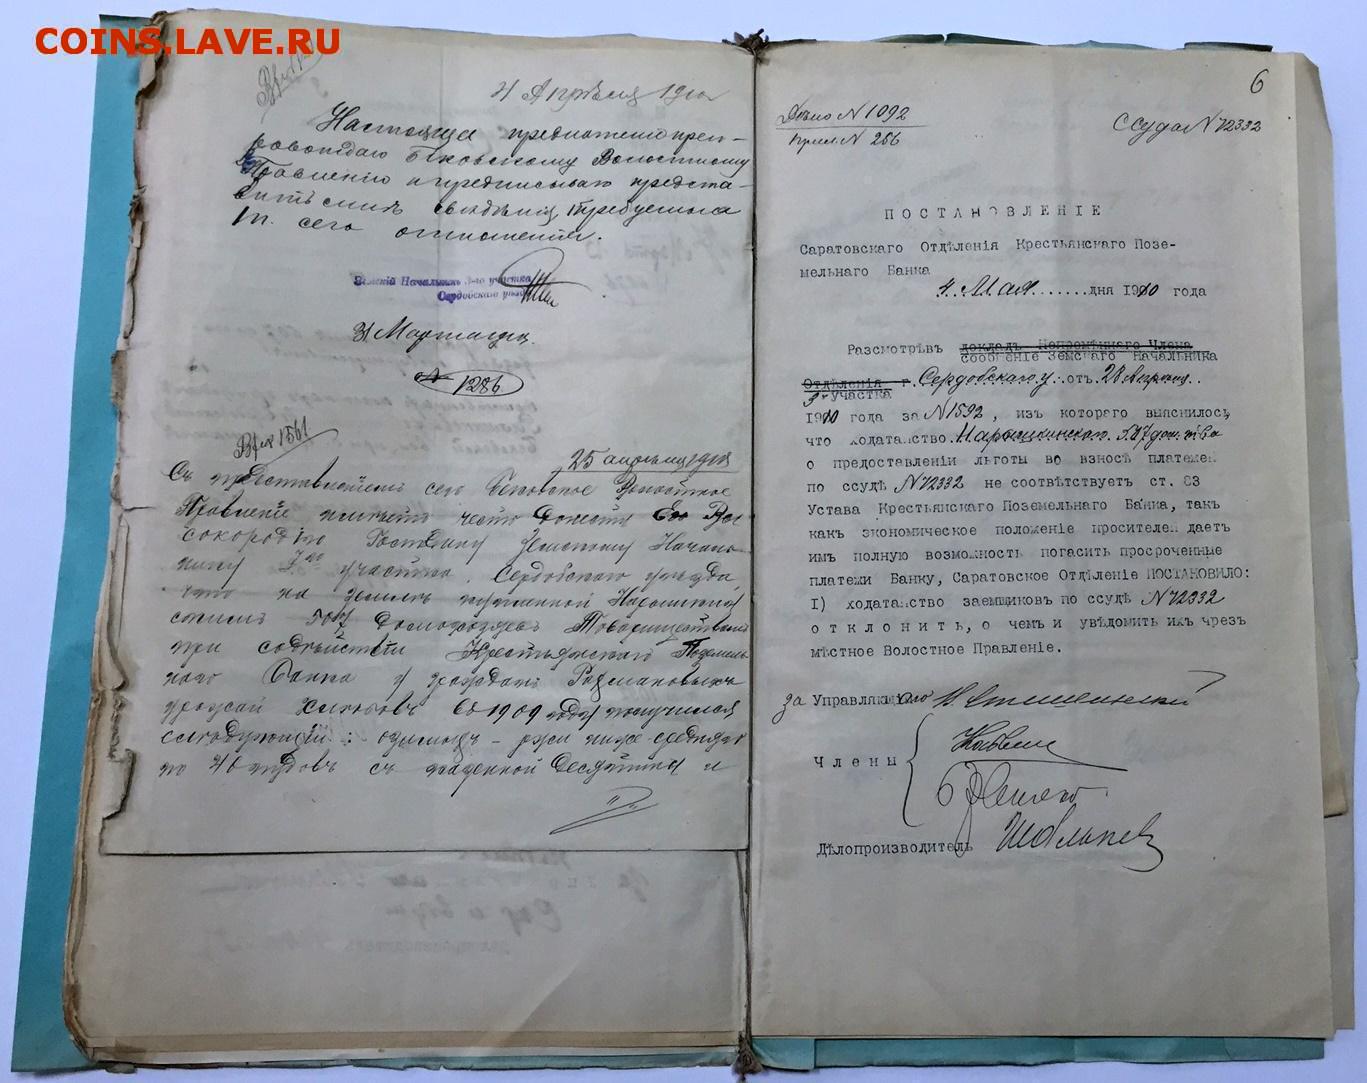 COINS.LAVE.RU
4 Апрѣля 1910
Настоящее предложение преп-
ровождаю Бековскому Волостному
Правленію и предписываю предста-
вить мнѣ свѣдѣнія, требуемыя
сего отношенія.
Земскій Начальникъ 3-го участка
Сердобскаго уѣзда
31 Марта
№ 1286
Вх 1561
25 апрѣля 1910
Съ представленіемъ сего Бековское Волостное
Правленіе имѣетъ честь донести Его Вы
сокородію Господину Земскому Началь
нику 3го участка, Сердобскаго уѣзда,
что на землѣ купленной Нарышкин
скимъ домохозяевъ Товариществомъ
при содѣйствіи Крестьянскаго Поземель
наго Банка у гражданъ
урожай хлѣбовъ въ 1909 году получился
слѣдующій: озимыхъ - ржи ниже средняго
по 40 пудовъ съ казенной десятины и
6
Дѣло N 1092
N 256
Ссуда N 72332
ПОСТАНОВЛЕНІЕ
Саратовскаго Отдѣленія Крестьянскаго Позе-
мельнаго Банка
4 Мая ...... дня 1910 года
Разсмотрѣвъ докладъ Непремѣннаго Члена
сообщеніе Земскаго Начальника
Отдѣленія г. Сердобскаго у. отъ 28 Апрѣля
3 участка
1910 года за N 1592, изъ котораго выяснилось,
что ходатайство Нарышкинскаго
о предоставленіи льготы во взносѣ платежей
по ссудѣ N 72332 не соотвѣтствуетъ ст. 83
Устава Крестьянскаго Поземельнаго Банка, такъ
какъ экономическое положеніе просителей даетъ
имъ полную возможность погасить просроченные
платежи Банку, Саратовское Отдѣленіе ПОСТАНОВИЛО:
I) ходатайство заемщиковъ по ссудѣ N 72332
отклонить, о чемъ и увѣдомить ихъ чрезъ
мѣстное Волостное Правленіе.
За Управляющаго
Члены
Дѣлопроизводитель